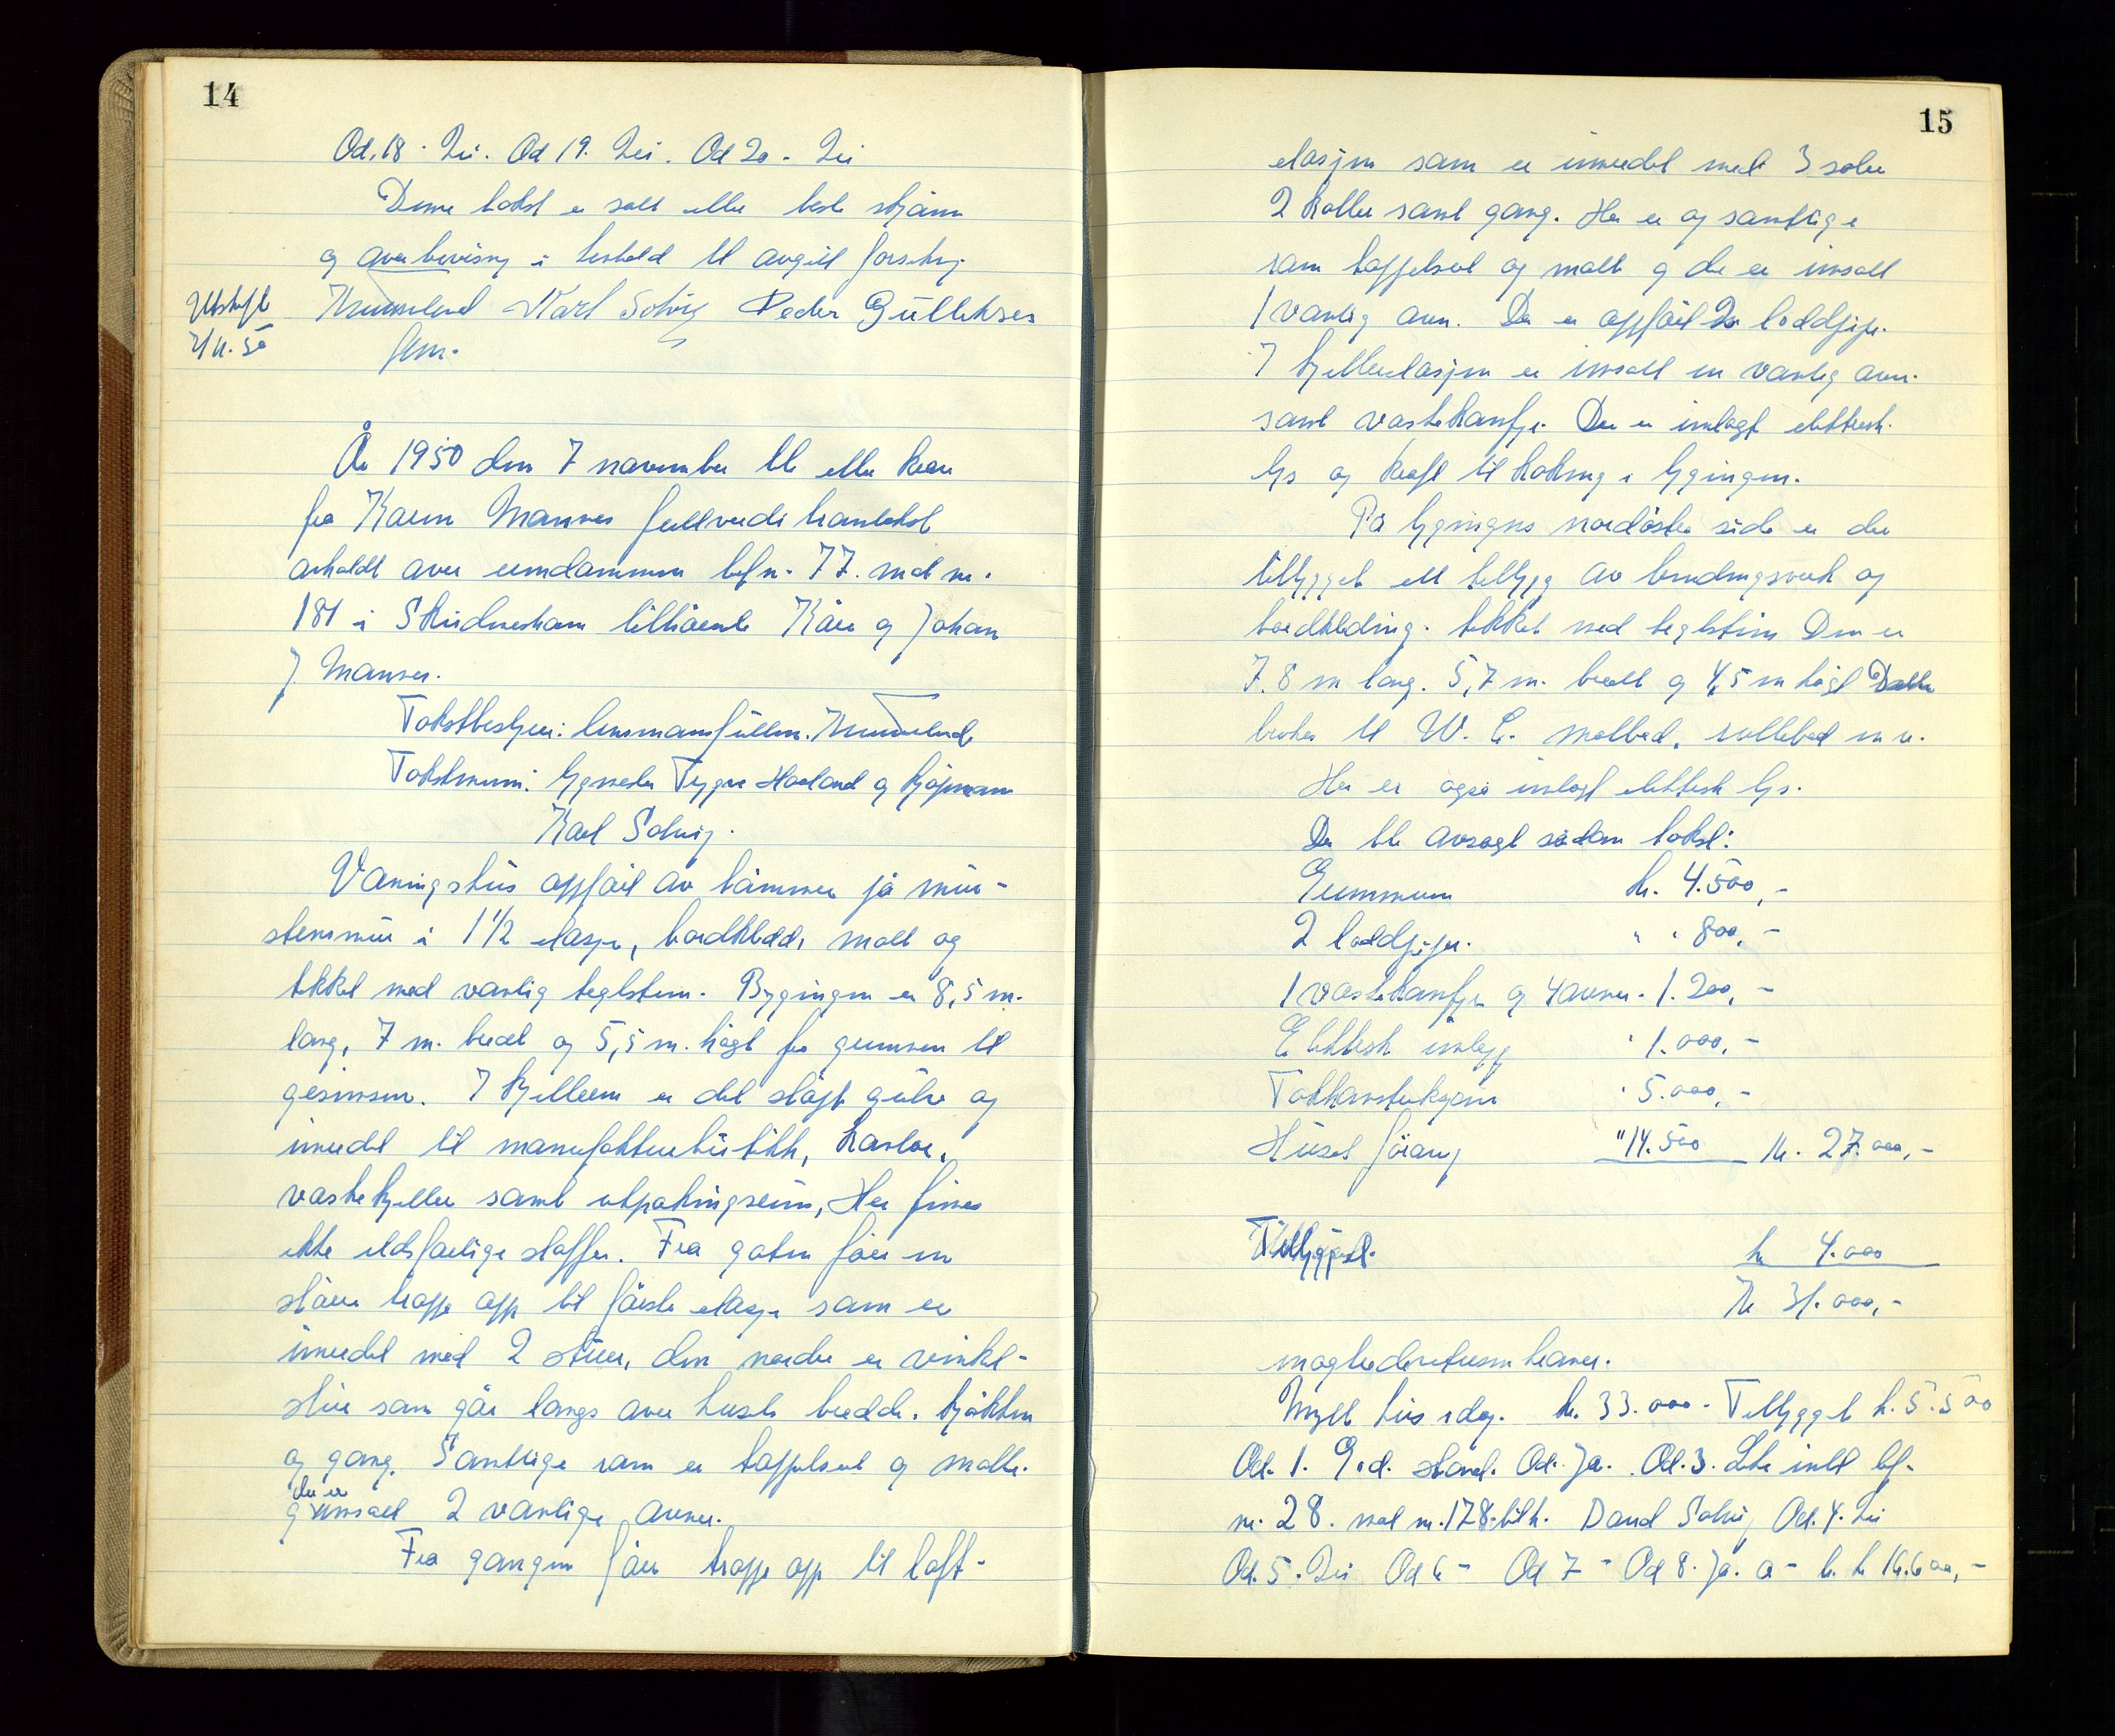 14
Od. 18. Nei. Od 19. Nei. Od 20. Nei
Denne takst er satt etter beste skjønn
og overbevisning i henhold til avgitt forsikring
Utskrift
7/11.50
Karl Solvig Peder Gullaksen
År 1950 den 7 november ble etter krav
fra Karen Mannes fullverdi branntakst
avholdt over eiendommen br.n. 77. mat nr.
181 i Skudneshavn tilhørende Kåre og Johan
J. Mannes.
Takstbestyrer: lensmannsfullm.
Takstmenn: bygmester Trygve Haaland og kjøpmann
Karl Solvig.
Våningshus oppført av tømmer på mur-
stensmur i 1 1/2 etasje, bordkledd, malt og
tekket med vanlig teglsten. Bygningen er 8,5 m.
lang, 7 m. bred og 5,5 m. høgt fra grunnen til
gesimsen. I kjelleren er det støpt gulv og
innredet til manufakturbutikk, kontor,
vaskekjeller samt utpakningsrum, Her finnes
ikke ildsfarlige stoffer. Fra gaten fører en
større trapp opp til første etasje som er
innredet med 2 stuer, den nordre er vinkel-
stue som går langs over husets bredde. kjøkken
og gang. Samtlige rom er trappelsert og malte.
der er
og innsatt 2 vanlige ovner.
Fra gangen fører trapp opp til loft-
15
etasjen som er innredet med 3 sove
2 kotter samt gang. Her er og samtlige
rom trappelsert og malte og der er innsatt
1 vanlig ovn. Der er oppført 2 loddpiper.
I kjelleretasjen er innsatt en vanlig ovn.
samt vaskekanfyr. Der er innlagt elektrisk
lys og kraft til koking i bygningen.
På bygningens nordøstre side er der
tilbygget ett tilbygg av bindingsverk og
bordkledning. tekket med teglsten Den er
7.8 m lang. 5,7 m. bredt og 4,5 m høgt Dette
brukes til W. C. matbod, rullebod m.v.
Her er også innlagt elektrisk lys.
Der ble avsagt sådan takst:
Grunnmur kr. 4.500,-
2 loddpiper. " " 800,-
1 vaskekanfyr og 4 ovner " 1.200,-
Elektrisk innlegg " 1.000,-
Takkonstruksjon " 5.000,-
Huset forøvrig " 14.500 kr. 27.000,-
Tilbygget. kr 4.000
kr 31.000,-
Nytt hus idag. kr. 33.000. Tilbygget kr. 5.500
Od. 1. God. stand. Od. Ja. Od. 3.
nr. 28. mat nr. 178 tilh. David Solvig Od. 4. Nei
Od. 5. Nei Od 6 - Od 7 - Od 8. Ja. a - b. kr 16.600,-